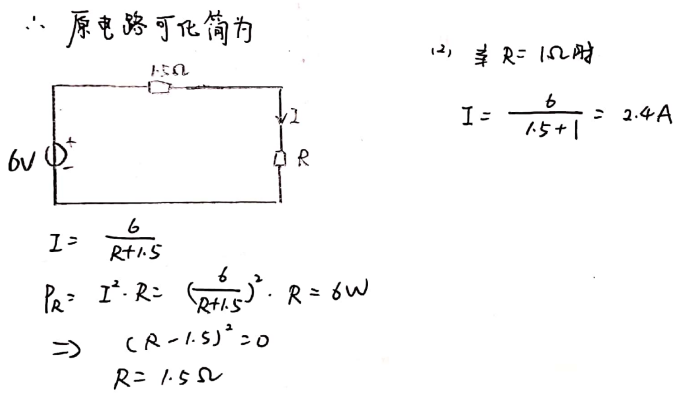 ∴ 原电路可化简为
1.5Ω
I
6V
+
-
R
I = 6/(R+1.5)
P_R = I²·R = (6/(R+1.5))²·R = 6W
⇒ (R-1.5)² = 0
R = 1.5Ω
(2) 当 R = 1Ω时
I = 6/(1.5+1) = 2.4A